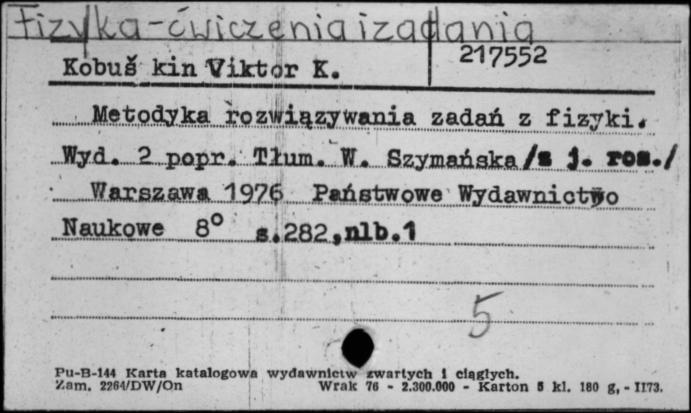 Fizyka-ćwiczenia i zadania
217552
Kobuš kin Viktor K.
Metodyka rozwiązywania zadań z fizyki.
Wyd. 2 popr. Tłum. W. Szymańska /z j. ros./
Warszawa 1976 Państwowe Wydawnictwo
Naukowe 8° s.282,nlb.1
5
Pu-B-144 Karta katalogowa wydawnictw zwartych i ciągłych.
Zam. 2264/DW/On Wrak 76 - 2.300.000 - Karton 5 kl. 180 g, - II73.